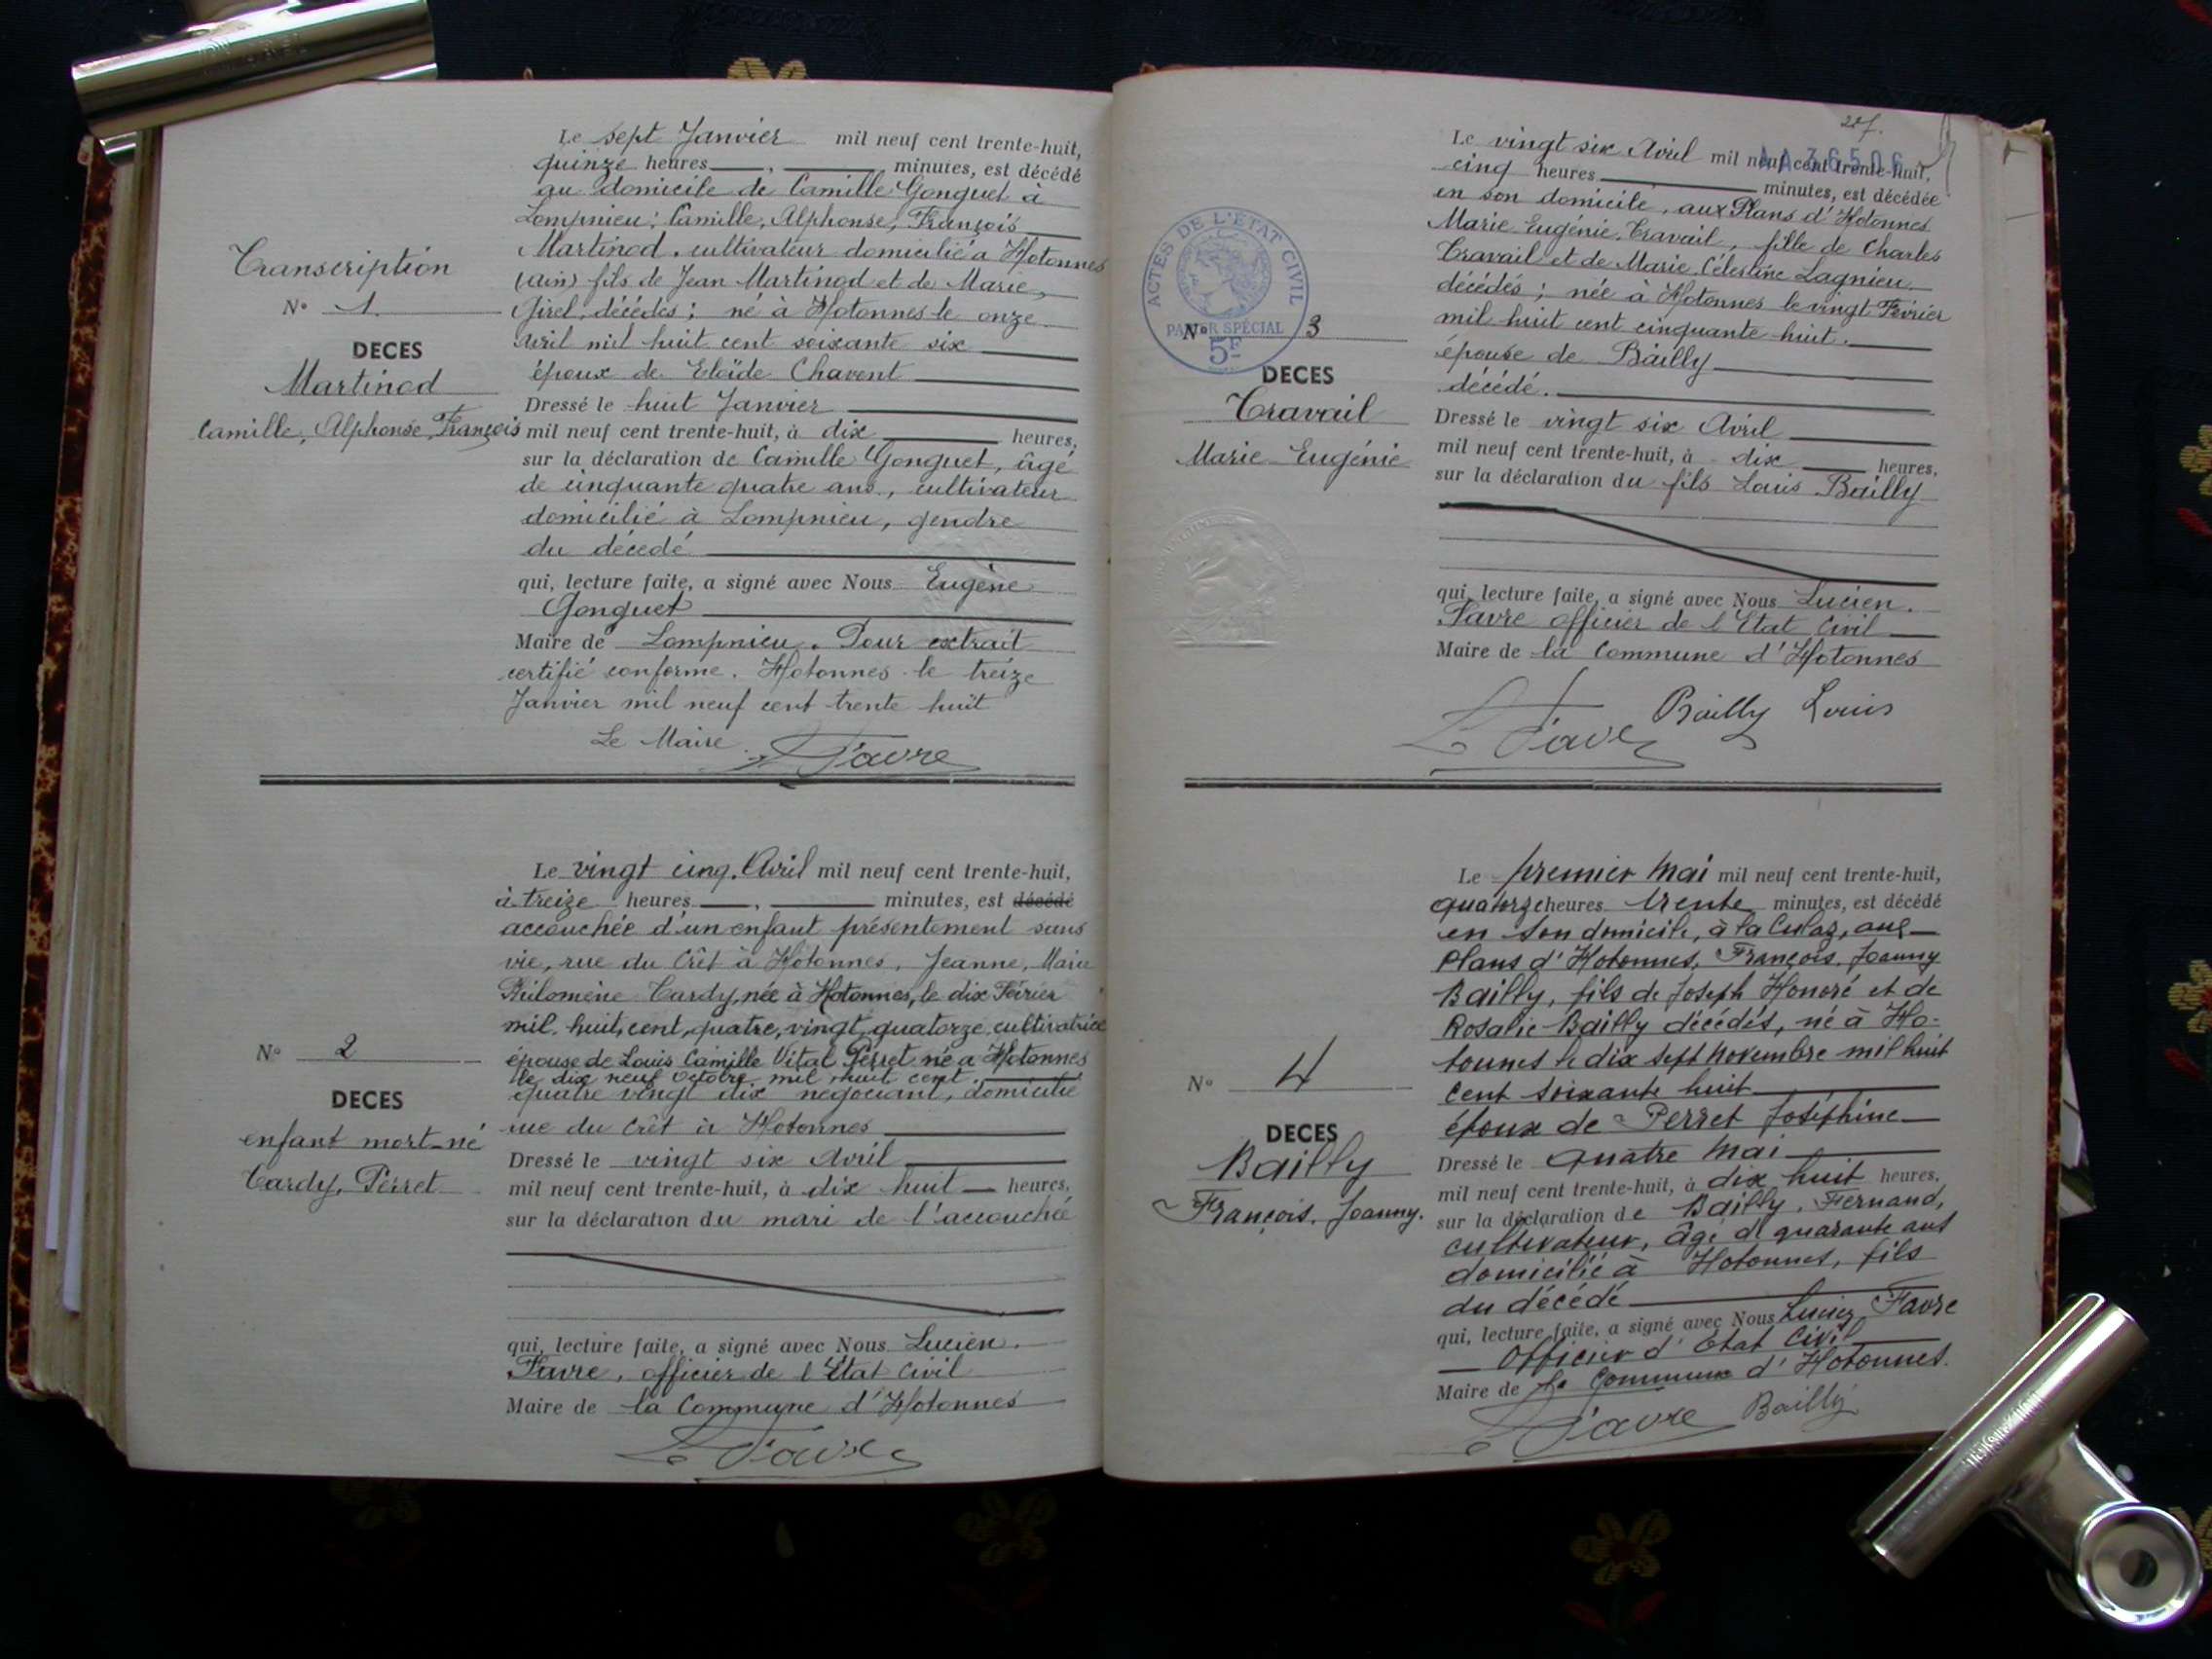 Transcription
N° 1.
DECES
Martinod
Camille, Alphonse, François
Le sept Janvier mil neuf cent trente-huit,
quinze heures , minutes, est décédé
au domicile de Camille Gonguet à
Lompnieu : Camille, Alphonse, François
Martinod, cultivateur domicilié à Hotonnes
(Ain) fils de Jean Martinod et de Marie
Girel, décédés ; né à Hotonnes le onze
Avril mil huit cent soixante six
époux de Eloïde Chavent
Dressé le huit Janvier
mil neuf cent trente-huit, à dix heures,
sur la déclaration de Camille Gonguet, âgé
de cinquante quatre ans, cultivateur
domicilié à Lompnieu, gendre
du décédé
qui, lecture faite, a signé avec Nous Eugène
Gonguet
Maire de Lompnieu. Pour extrait
certifié conforme. Hotonnes le treize
Janvier mil neuf cent trente huit
Le Maire
L Favre
N° 2
DECES
enfant mort-né
Tardy, Perret
Le vingt cinq Avril mil neuf cent trente-huit,
à treize heures , minutes, est décédé
accouchée d'un enfant présentement sans
vie, rue du Crêt à Hotonnes, Jeanne, Marie
Philomène Tardy, née à Hotonnes, le dix Février
mil huit cent quatre vingt quatorze, cultivatrice
épouse de Louis Camille Vital Perret né à Hotonnes
le dix neuf Octobre mil huit cent
quatre vingt dix négociant, domicilié
rue du Crêt à Hotonnes
Dressé le vingt six Avril
mil neuf cent trente-huit, à dix huit heures,
sur la déclaration du mari de l'accouchée
qui, lecture faite, a signé avec Nous Lucien
Favre, officier de l'Etat Civil
Maire de la Commune d'Hotonnes
L Favre
AA 36506
ACTES DE L'ÉTAT CIVIL
PAPIER SPÉCIAL
5F
N° 3
DECES
Travail
Marie Eugénie
Le vingt six Avril mil neuf cent trente-huit,
cinq heures minutes, est décédée
en son domicile, aux Plans d'Hotonnes
Marie Eugénie Travail, fille de Charles
Travail et de Marie Célestine Lagnieu
décédés ; née à Hotonnes le vingt Février
mil huit cent cinquante huit.
épouse de Bailly
décédé.
Dressé le vingt six Avril
mil neuf cent trente-huit, à dix heures,
sur la déclaration du fils Louis Bailly
qui, lecture faite, a signé avec Nous Lucien
Favre officier de l'Etat Civil
Maire de la Commune d'Hotonnes
L Favre Bailly Louis
N° 4
DECES
Bailly
François, Joanny.
Le premier Mai mil neuf cent trente-huit,
quatorze heures trente minutes, est décédé
en son domicile, à la Culaz, aux
Plans d'Hotonnes, François, Joanny
Bailly, fils de Joseph Honoré et de
Rosalie Bailly décédés, né à Ho-
tonnes le dix sept novembre mil huit
cent soixante huit
époux de Perret Joséphine
Dressé le quatre Mai
mil neuf cent trente-huit, à dix huit heures,
sur la déclaration de Bailly, Fernand,
cultivateur, âgé de quarante ans
domicilié à Hotonnes, fils
du décédé
qui, lecture faite, a signé avec Nous Lucien Favre
Officier d'Etat Civil
Maire de la Commune d'Hotonnes.
L Favre Bailly